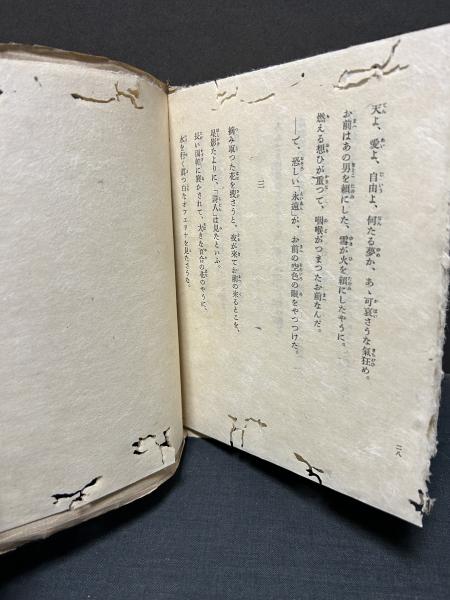 天よ、愛よ、自由よ、何たる夢か、あゝ可哀さうな氣狂め。
お前はあの男を頼にした、雪が火を頼にしたやうに。
燃える想ひが重つて、咽喉がつまつたお前なんだ。
――で、恐しい「永遠」が、お前の空色の眼をやつつけた。
三
摘み取つた花を捜さうと、夜が來てお前の來るとこを、
星影たよりに、「詩人」は見たといふ。
長い面帕に寢かされて、大きな百合の花のやうに、
水を行く眞つ白なオフェリヤを見たさうな。
二八